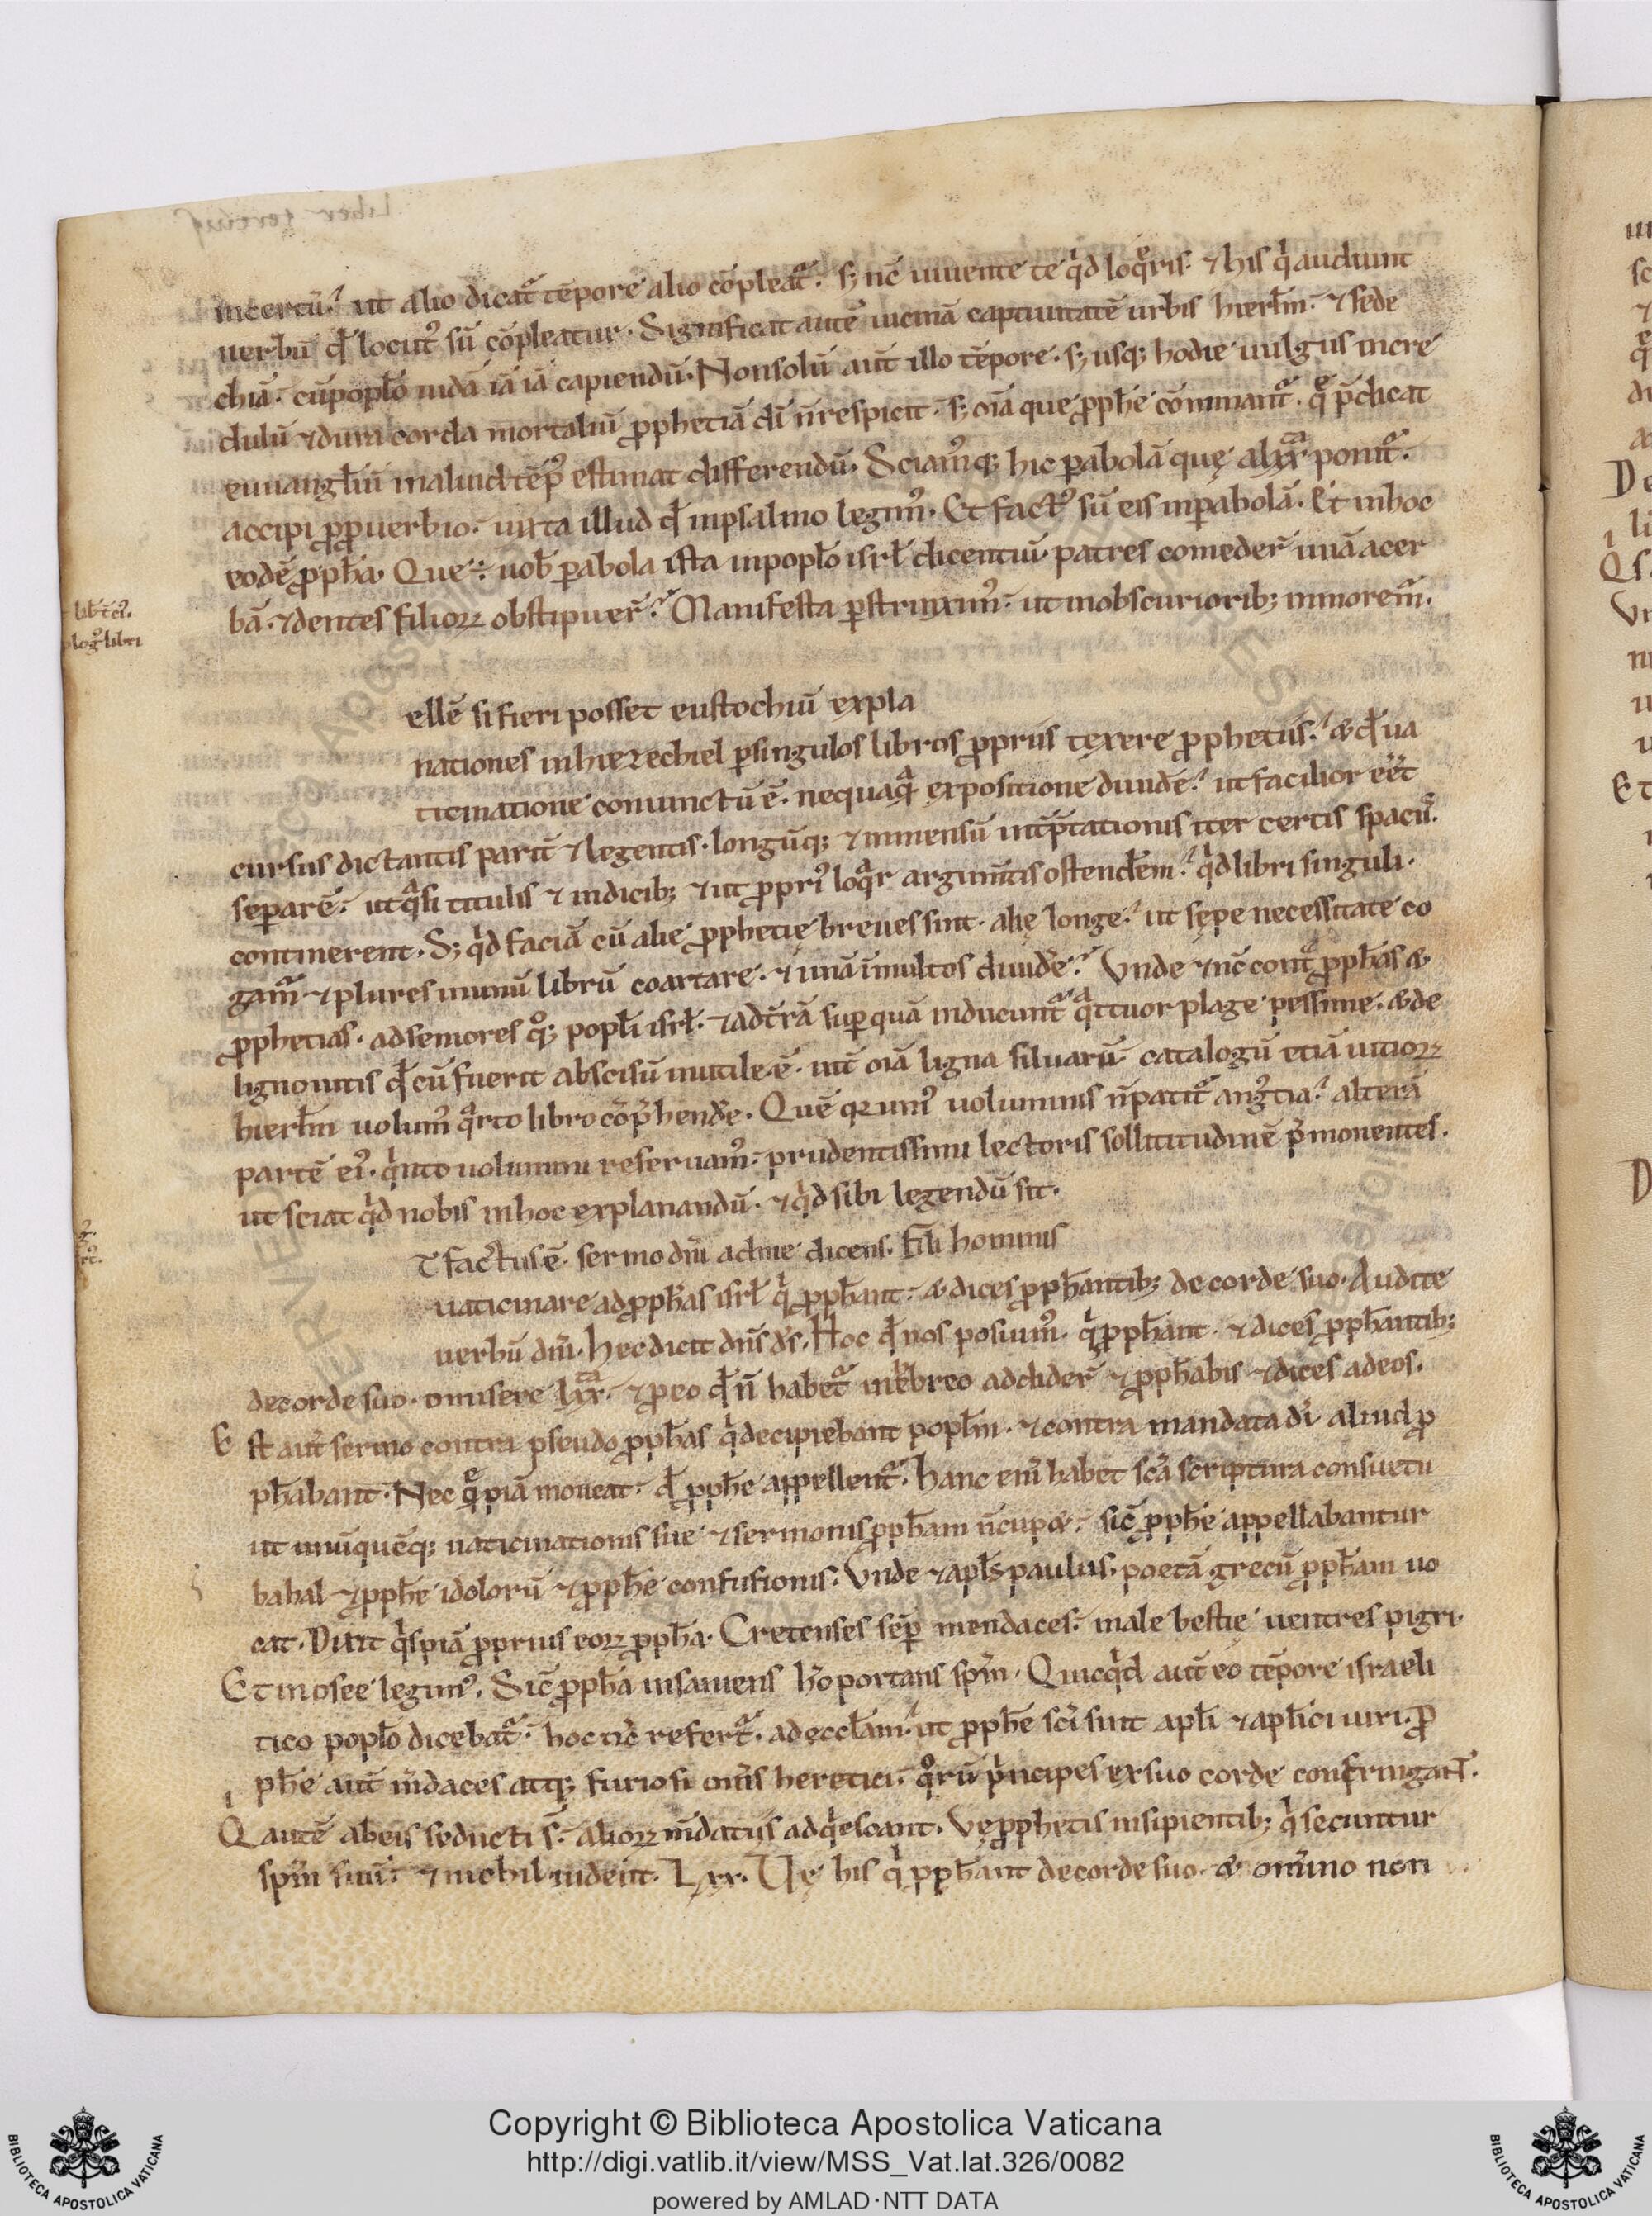 incertū. ut alio dicat᷑ tēpore alio cōpleat᷑. s; nc̄ uiuente te qͥd loqͣeris. ⁊ his qͥ audiunt
uerbū qđ locut᷒ sū cōpleatur. Significat autē uicinā captiuitatē urbis hierłm. ⁊ sede
chiā. cū popł̄o iudā iā iā capiendū. Non solū aūt illo tēpore. s; usq; hodie uulgus incre
dulū ⁊ dura corda mortaliū ꝓphetiā dī n̄ respicit. s; oīa que ꝓph̄e cōminant᷑. q̄ p̄dicat
euuangłiū in aliud tēp᷒ estimat differendū. Sciam᷒q; hic ꝑabolā quę a lxxͣ ponit᷑.
accipi ꝓ ꝓuerbio. iuxta illud qđ in psalmo legim᷒. Et fact᷒ sū eis in ꝑabolā. Et in hoc
eodē ꝓph̄a. Que ÷ uob̄ ꝑabola ista in popł̄o isrł dicentiū. patres comeder̄ uuā acer
bā. ⁊ dentes filioꝝ obstipuer̄. Manifesta ꝑstrinxim᷒. ut in obscuriorib; inmorem᷒.
ellē si fieri posset eustochiū expla
nationes in hiezechiel ꝑ singulos libros ꝓpriis texere ꝓphetiis. & qđ ua
ticinatione coniunctū ē. nequaqͣ expositione diuidē. ut facilior eēt
cursus dictantis parit̄ ⁊ legentis. longūq; ⁊ inmensū int̄p̄tationis iter certis spaciis.
separē. ut qͣsi titulis ⁊ indicib; ⁊ ut ꝓpri᷒ loqͣr argum̄tis ostenderem. qͥd libri singuli.
continerent. S; qͥd faciā cū alie ꝓphetię breues sint. alię longe. ut sępe necessitate co
gam᷑ ⁊ plures in unū librū coartare. ⁊ unā in multos diuidȩ̄. Vnde ⁊ nc̄ contͣ ꝓph̄as &
ꝓphetias. ad seniores qͦ; popłi isrł. ⁊ ad t̄rā suꝑ quā inducunt᷑ qͣttuor plage pessime. & de
ligno uitis qđ cū fuerit abscisū inutile ē. int̄ oīa ligna siluarū catalogū etiā uitioꝝ
hierłm uolum᷒ qͣrto libro cōp̄hendēre. Quē qm̄ uni᷒ uoluminis n̄ patit᷑ ang᷒tia. alterā
partē ei᷒. qͥnto uolumini reseruam᷒. prudentissimi lectoris sollicitudinē p̄monentes.
ut sciat qͥd nobis in hoc explanandū. ⁊ qͥd sibi legendū sit.
T factus ē sermo dn̄i ad me dicens. Fili hominis
uaticinare ad ꝓph̄as isrł qͥ ꝓph̄ant. & dices ꝓph̄antib; de corde suo. Audite
uerbū dn̄i. hec dicit dn̄s ds̄. Hoc qđ nos posuim᷒. qͥ ꝓph̄ant. ⁊ dices ꝓph̄antib;
de corde suo. omisere lxxͣ. ⁊ ꝓ eo qđ n̄ habet᷑ in hebreo addider̄ ⁊ ꝓph̄abis ⁊ dices ad eos.
E st aut̄ sermo contra pseudo ꝓph̄as qͥ decipiebant popł̄m. ⁊ contra mandata dī aliud ꝓ
ph̄abant. Nec q̄piā moueat. qđ ꝓph̄e appellent᷑. hanc enī habet scā scriptura consuetu
ut unūquēq; uaticinationis sue ⁊ sermonis ꝓph̄am n̄cupet. sic̄ ꝓph̄e appellabantur
bahal ⁊ ꝓph̄e idolorū ⁊ ꝓph̄e confusionis. Vnde ⁊ apłs paulus. poetā grecū ꝓph̄am uo
cat. Dixit qͥspiā ꝓprius eoꝝ ꝓph̄a. Cretenses sēꝑ mendaces. male bestię uentres pigri.
Et in osee legim᷒. Sic̄ ꝓph̄a insaniens hō portans spm̄. Quicqͥd aut̄ eo tēpore israeli
tico popł̄o dicebat᷑. hoc nc̄ refert᷑. ad ęccłam. ut ꝓph̄e sc̄i sint apłi ⁊ apłici uiri. ꝓ
ph̄e aut̄ m̄daces atq; furiosi om̄s heretici. qͦrū p̄ncipes ex suo corde confringant.
Qͥ autē ab eis seducti s̄. alioꝝ m̄datiis adqͥescant. Vę ꝓphetis insipientib; qͥ secuntur
spm̄ suū. ⁊ nichil uident. Lxx. Vę his qͥ ꝓph̄ant de corde suo. & om̄ino non
Copyright © Biblioteca Apostolica Vaticana
http://digi.vatlib.it/view/MSS_Vat.lat.326/0082
powered by AMLAD·NTT DATA
BIBLIOTECA APOSTOLICA VATICANA
BIBLIOTECA APOSTOLICA VATICANA